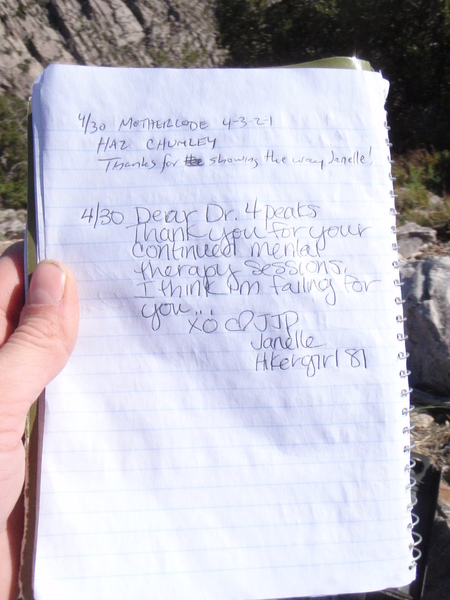 4/30 MOTHERLODE 4-3-2-1
HAZ CHUMLEY
Thanks for the showing the way Janelle!
4/30 Dear Dr. 4 Peaks
Thank you for your
continued mental
therapy sessions.
I think I'm falling for
you...
XO ♡ JJP
Janelle
Hikergirl 81